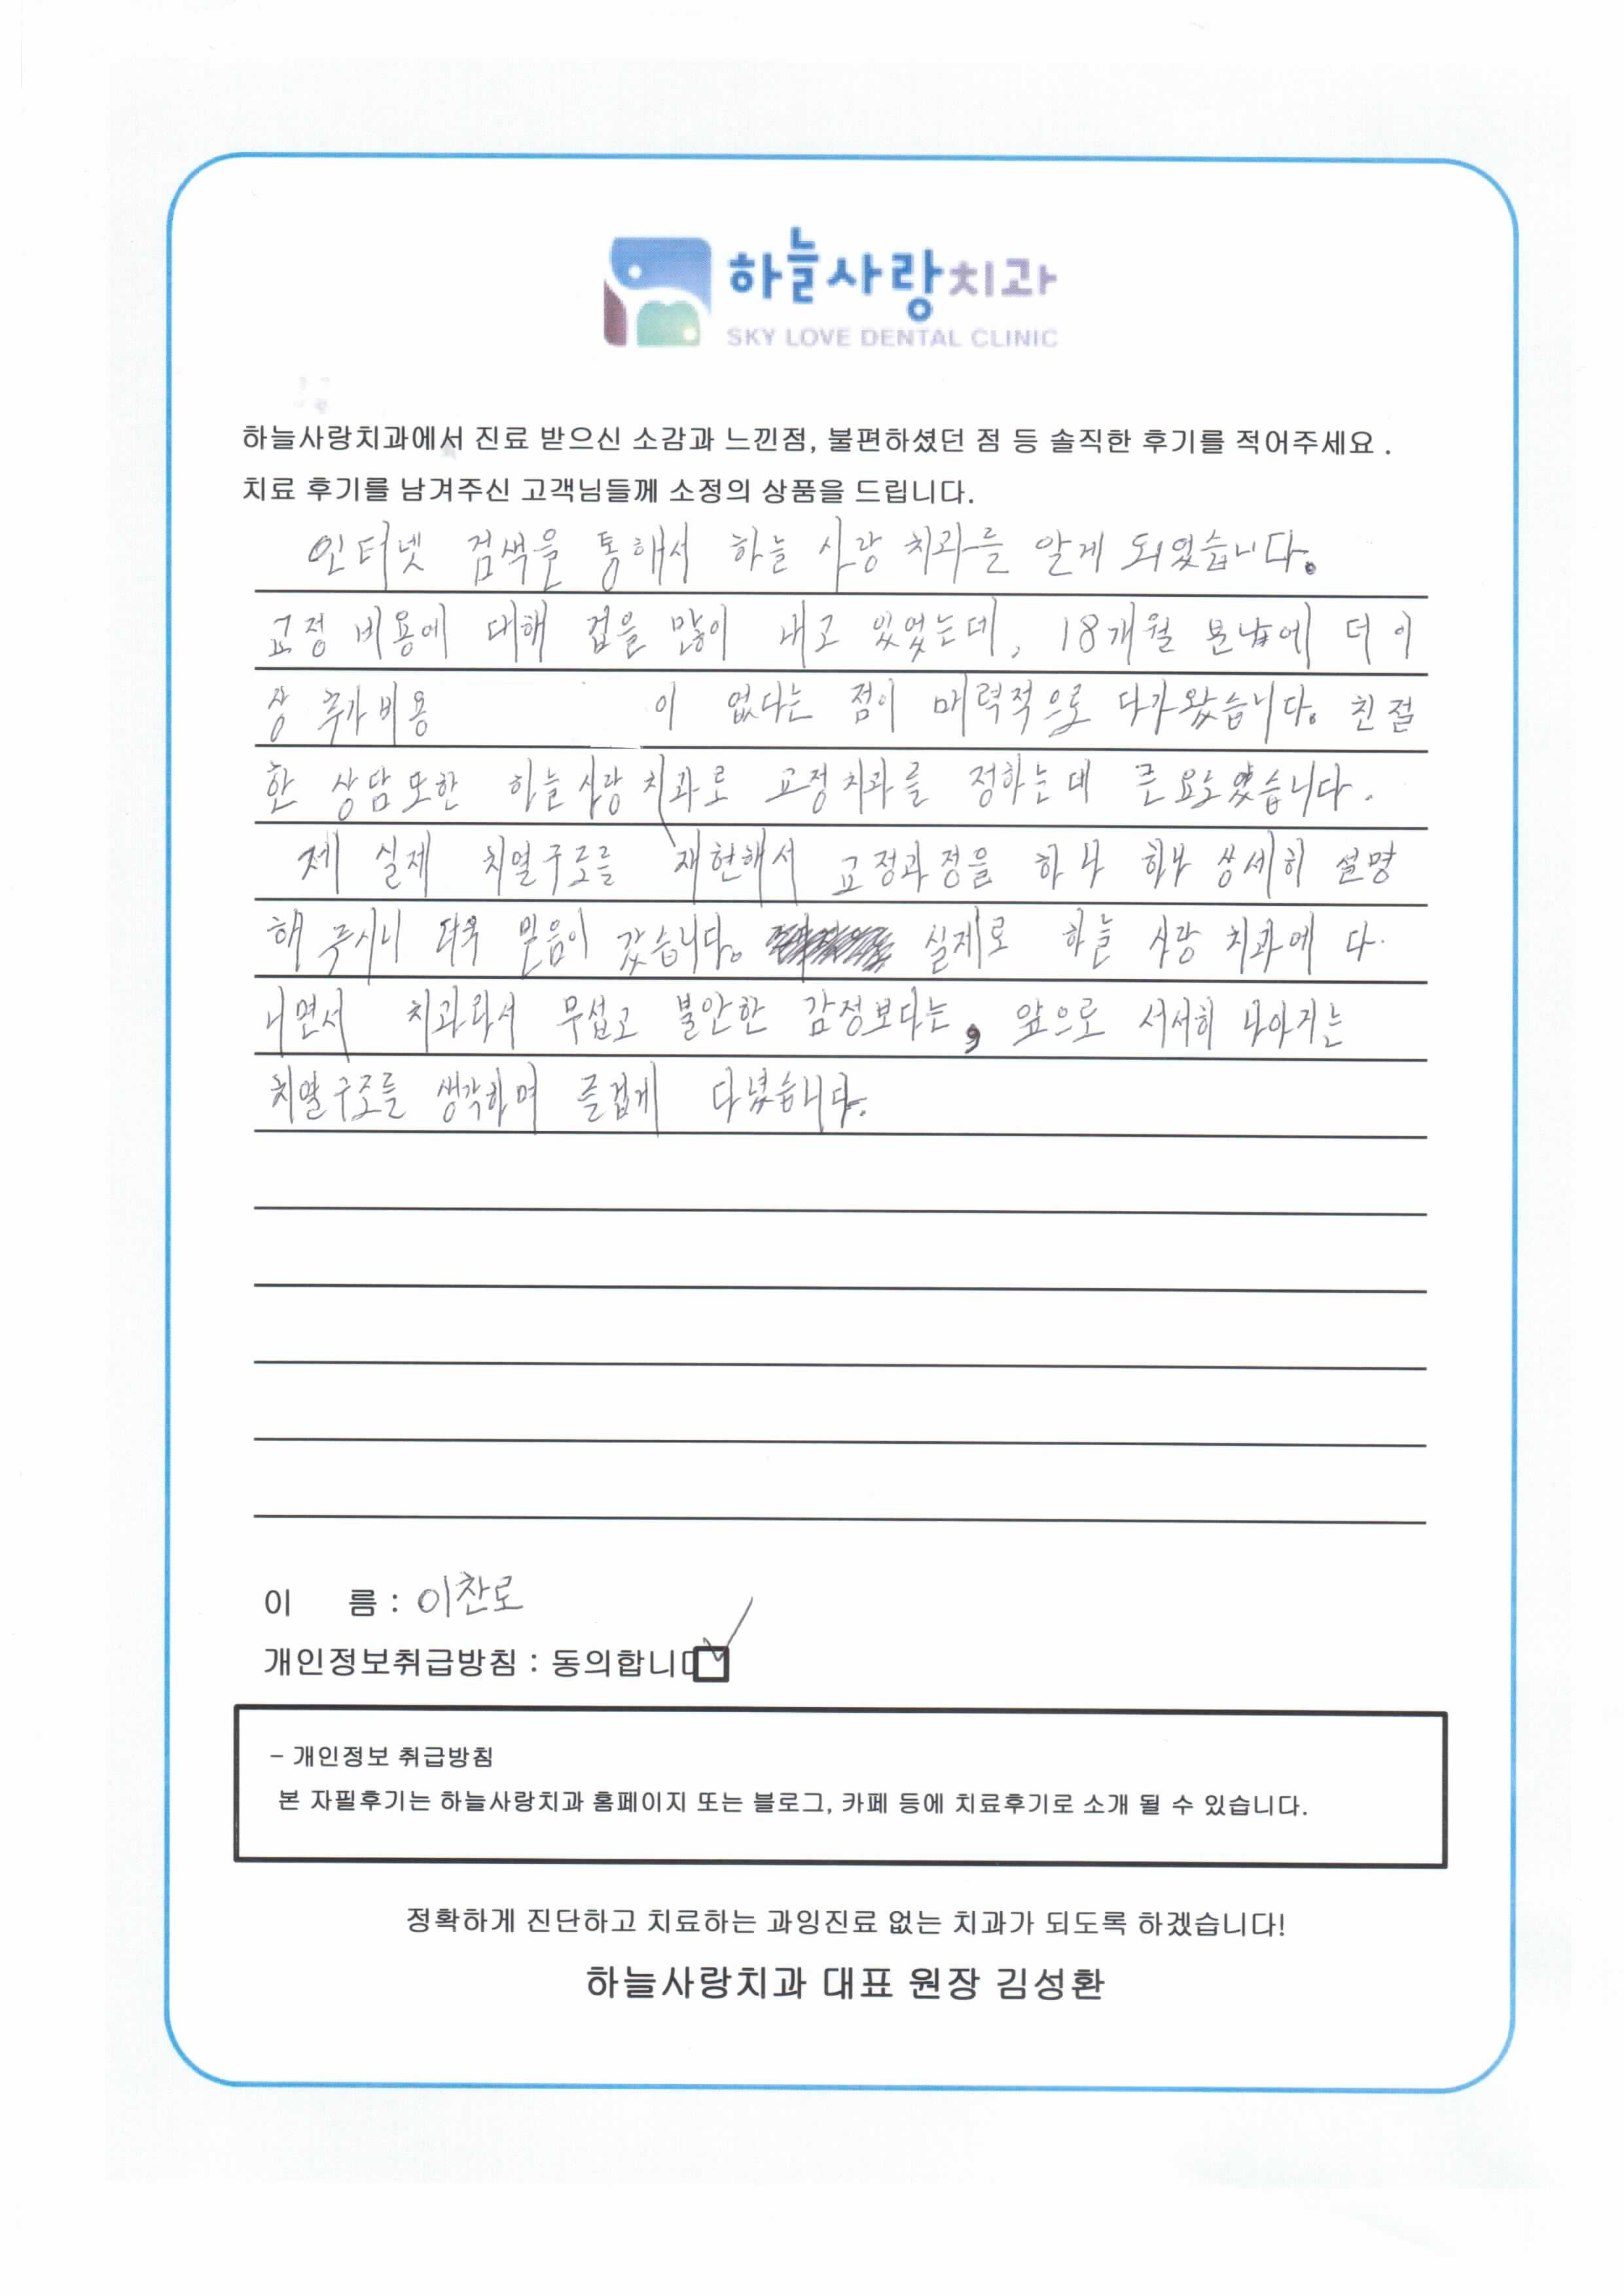 하늘사랑치과
SKY LOVE DENTAL CLINIC
하늘사랑치과에서 진료 받으신 소감과 느낀점, 불편하셨던 점 등 솔직한 후기를 적어주세요.
치료 후기를 남겨주신 고객님들께 소정의 상품을 드립니다.
인터넷 검색을 통해서 하늘 사랑 치과를 알게 되었습니다.
교정 비용에 대해 겁을 많이 내고 있었는데, 18개월 분납에 더 이
상 추가비용 이 없다는 점이 매력적으로 다가왔습니다. 친절
한 상담또한 하늘사랑치과로 교정치과를 정하는데 큰 요소였습니다.
제 실제 치열구조를 재현해서 교정과정을 하나 하나 상세히 설명
해 주시니 더욱 믿음이 갔습니다. 실제로 하늘 사랑 치과에 다
니면서 치과라서 무섭고 불안한 감정보다는, 앞으로 서서히 나아지는
치열구조를 생각하며 즐겁게 다녔습니다.
이 름 : 이찬로
개인정보취급방침 : 동의합니다
- 개인정보 취급방침
본 자필후기는 하늘사랑치과 홈페이지 또는 블로그, 카페 등에 치료후기로 소개 될 수 있습니다.
정확하게 진단하고 치료하는 과잉진료 없는 치과가 되도록 하겠습니다!
하늘사랑치과 대표 원장 김성환